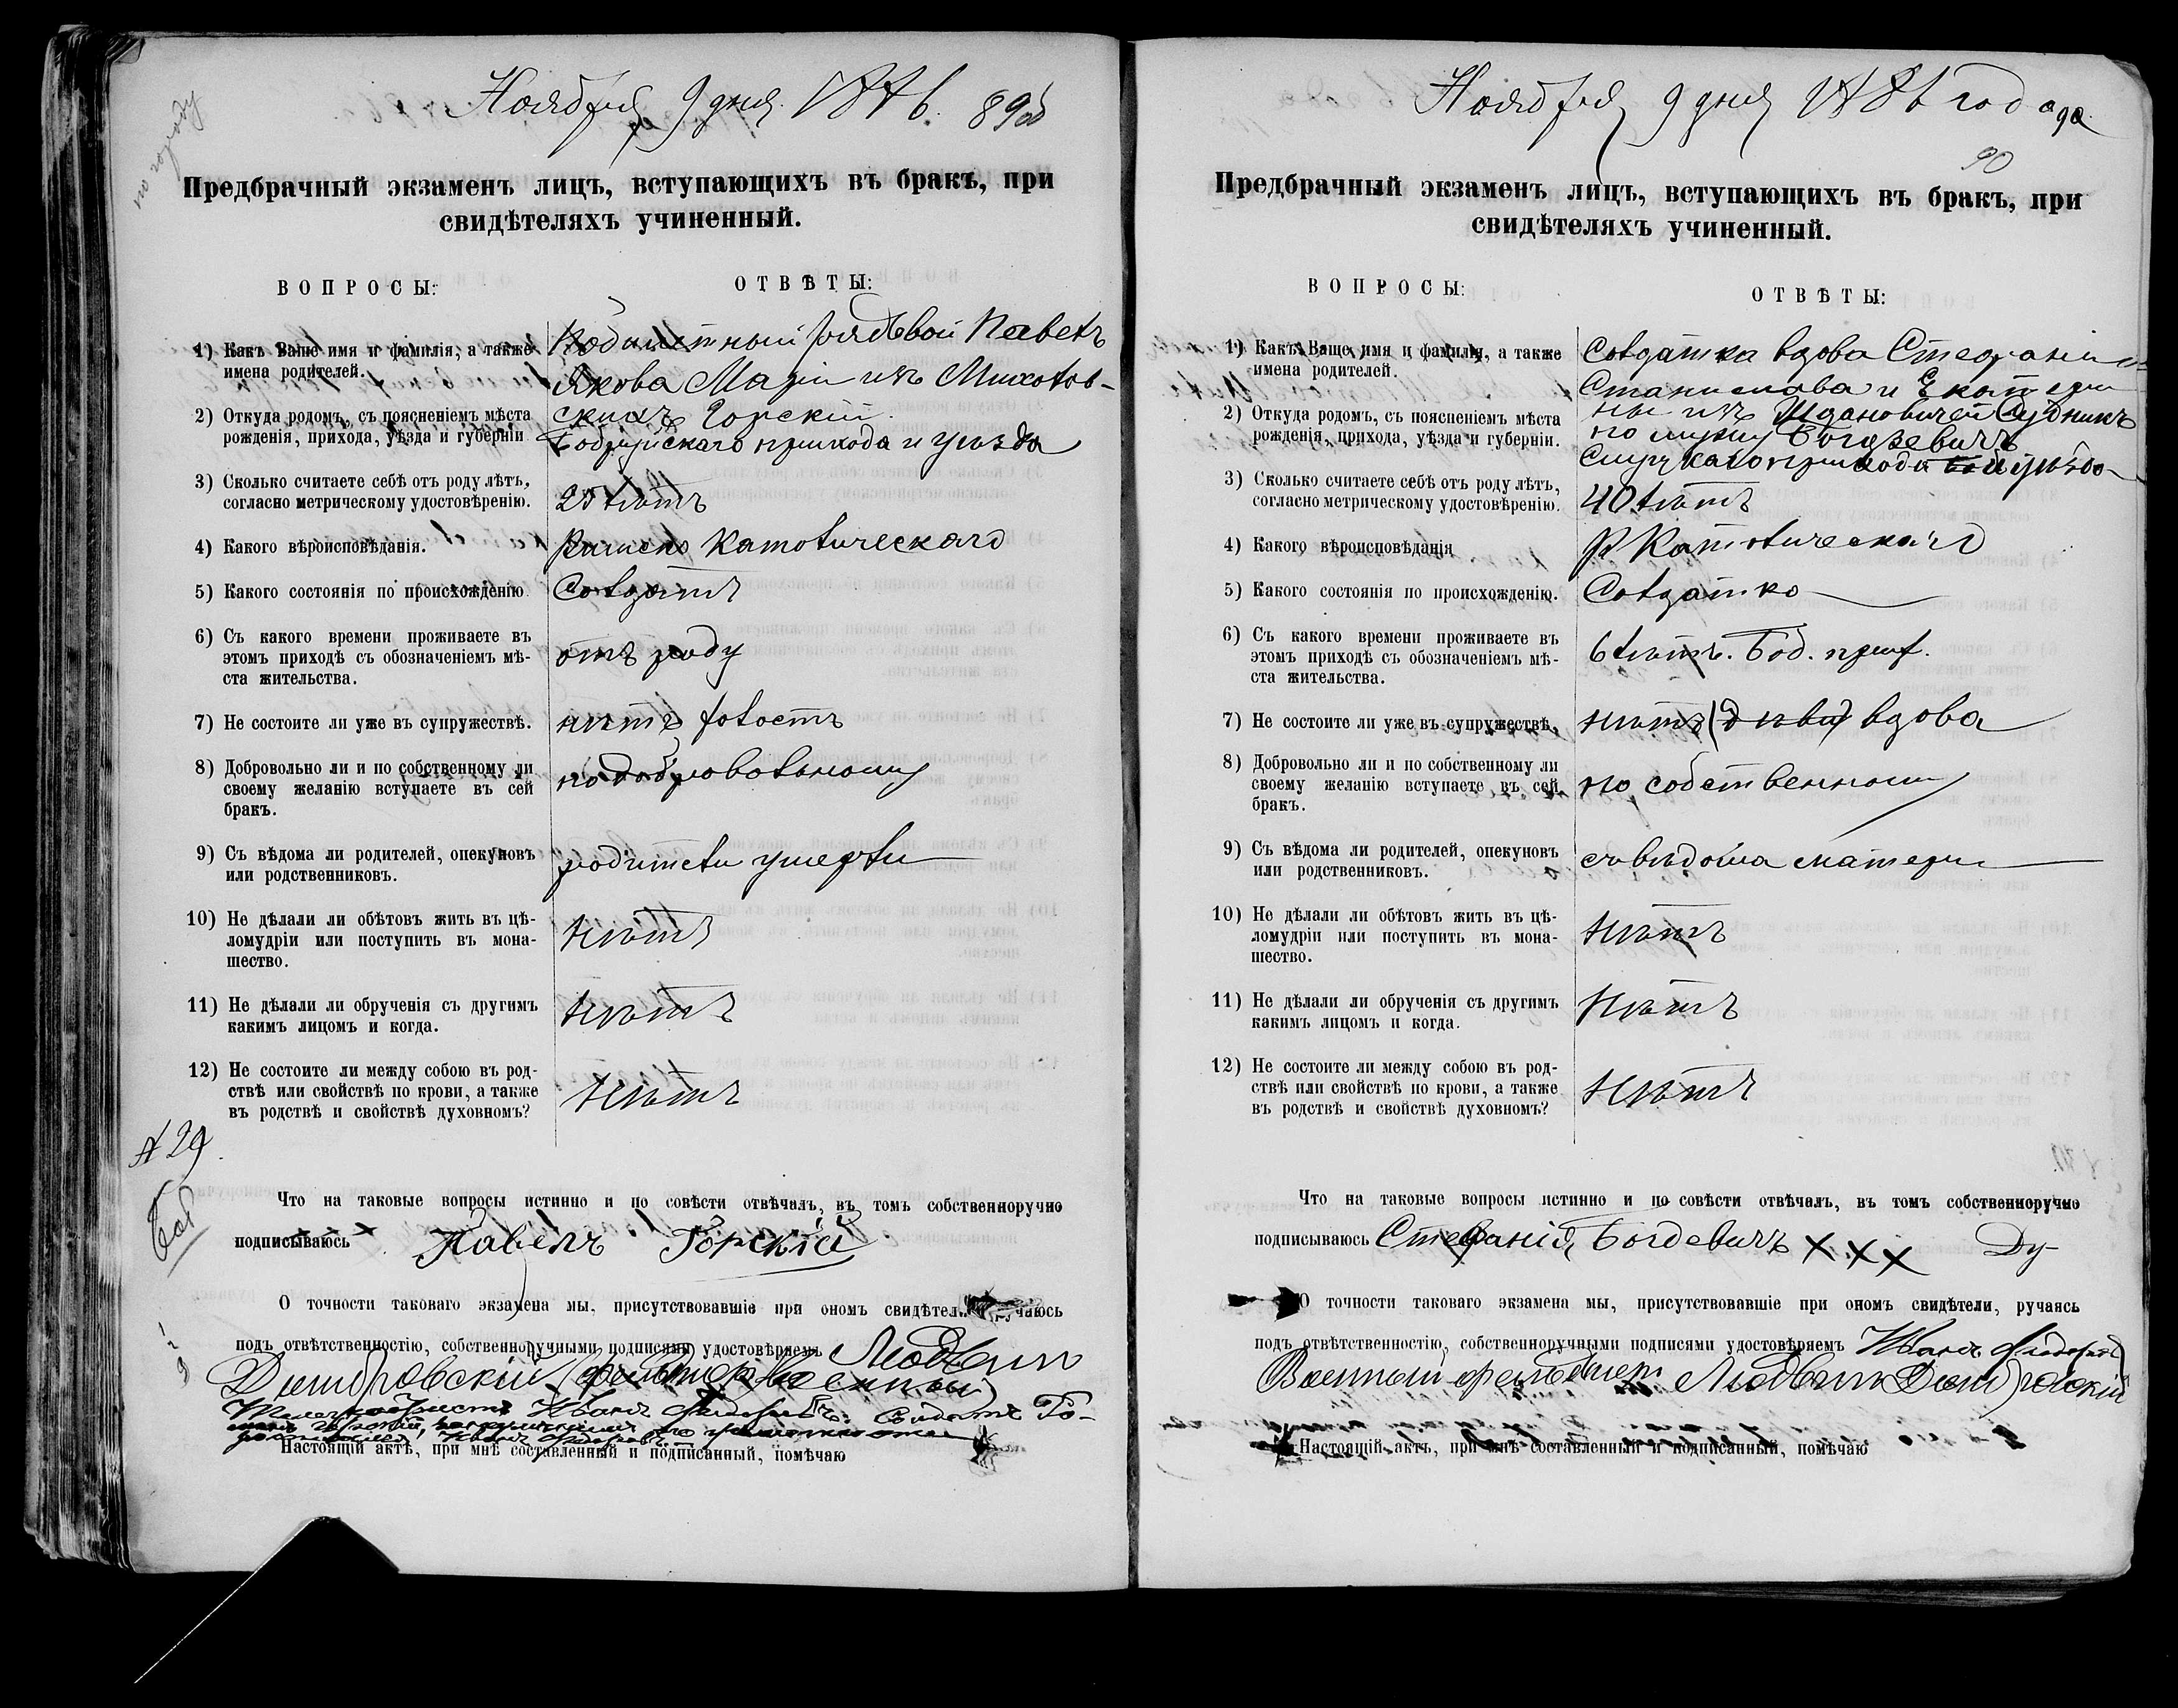 по городу
Ноября 9 дня 1886. 89
Предбрачный экзаменъ лицъ, вступающихъ въ бракъ, при
свидѣтеляхъ учиненный.
ВОПРОСЫ: ОТВѢТЫ:
1) Какъ Ваше имя и фамилія, а также
имена родителей.
рядовой Павелъ
Якова Маріи изъ
Горскій
2) Откуда родомъ, съ поясненіемъ мѣста
рожденія, прихода, уѣзда и губерніи
Бобруйскаго прихода и уѣзда
3) Сколько считаете себѣ отъ роду лѣтъ,
согласно метрическому удостовѣренію.
25 лѣтъ
4) Какого вѣроисповѣданія.
Римско Католическаго
5) Какого состоянія по происхожденію
Солдатъ
6) Съ какого времени проживаете въ
этомъ приходѣ съ обозначеніемъ мѣ-
ста жительства.
отъ роду
7) Не состоите ли уже въ супружествѣ.
нѣтъ холостъ
8) Добровольно ли и по собственному ли
своему желанію вступаете въ сей
бракъ.
по добровольному
9) Съ вѣдома ли родителей, опекуновъ
или родственниковъ.
родители умерли
10) Не дѣлали ли обѣтовъ жить въ цѣ-
ломудріи или поступить въ мона-
шество.
Нѣтъ
11) Не дѣлали ли обрученія съ другимъ
какимъ лицомъ и когда.
Нѣтъ
12) Не состоите ли между собою въ род-
ствѣ или свойствѣ по крови, а также
въ родствѣ и свойствѣ духовномъ?
Нѣтъ
№ 29
Что на таковые вопросы истинно и по совѣсти отвѣчалъ, въ томъ собственноручно
подписываюсь Павелъ Горскій
О точности таковаго экзамена мы, присутствовавшіе при ономъ
подъ отвѣтственностію, собственноручными подписями удостовѣряемъ Людвигъ
Домбровскій
Иванъ
Настоящій актъ, при мнѣ составленный и подписанный, помѣчаю
Ноября 9 дня 1886 года
90
Предбрачный экзаменъ лицъ, вступающихъ въ бракъ, при
свидѣтеляхъ учиненный.
ВОПРОСЫ: ОТВѢТЫ:
1) Какъ Ваше имя и фамилія, а также
имена родителей.
Солдатка вдова Стефанія
Станислава и Екатери
ны изъ Ждановичей
по мужу Богдевичъ
2) Откуда родомъ, съ поясненіемъ мѣста
рожденія, прихода, уѣзда и губерніи.
Слуцкаго прихода и уѣзда
3) Сколько считаете себѣ отъ роду лѣтъ,
согласно метрическому удостовѣренію.
40 лѣтъ
4) Какого вѣроисповѣданія
Р Католическаго
5) Какого состоянія по происхожденію.
Солдатка
6) Съ какого времени проживаете въ
этомъ приходѣ съ обозначеніемъ мѣ-
ста жительства.
6 лѣтъ. Боб. прих.
7) Не состоите ли уже въ супружествѣ.
нѣтъ вдова
8) Добровольно ли и по собственному ли
своему желанію вступаете въ сей
бракъ.
по собственному
9) Съ вѣдома ли родителей, опекуновъ
или родственниковъ.
съ вѣдома матери
10) Не дѣлали ли обѣтовъ жить въ цѣ-
ломудріи или поступить въ мона-
шество.
Нѣтъ
11) Не дѣлали ли обрученія съ другимъ
какимъ лицомъ и когда.
Нѣтъ
12) Не состоите ли между собою въ род-
ствѣ или свойствѣ по крови, а также
въ родствѣ и свойствѣ духовномъ?
Нѣтъ
Что на таковые вопросы истинно и по совѣсти отвѣчалъ, въ томъ собственноручно
подписываюсь Стефанія Богдевичъ XXX
О точности таковаго экзамена мы, присутствовавшіе при ономъ свидѣтели, ручаясь
подъ отвѣтственностію, собственноручными подписями удостовѣряемъ Иванъ
Военный фельдшеръ Людвигъ Домбровскій
Настоящій актъ, при мнѣ составленный и подписанный, помѣчаю